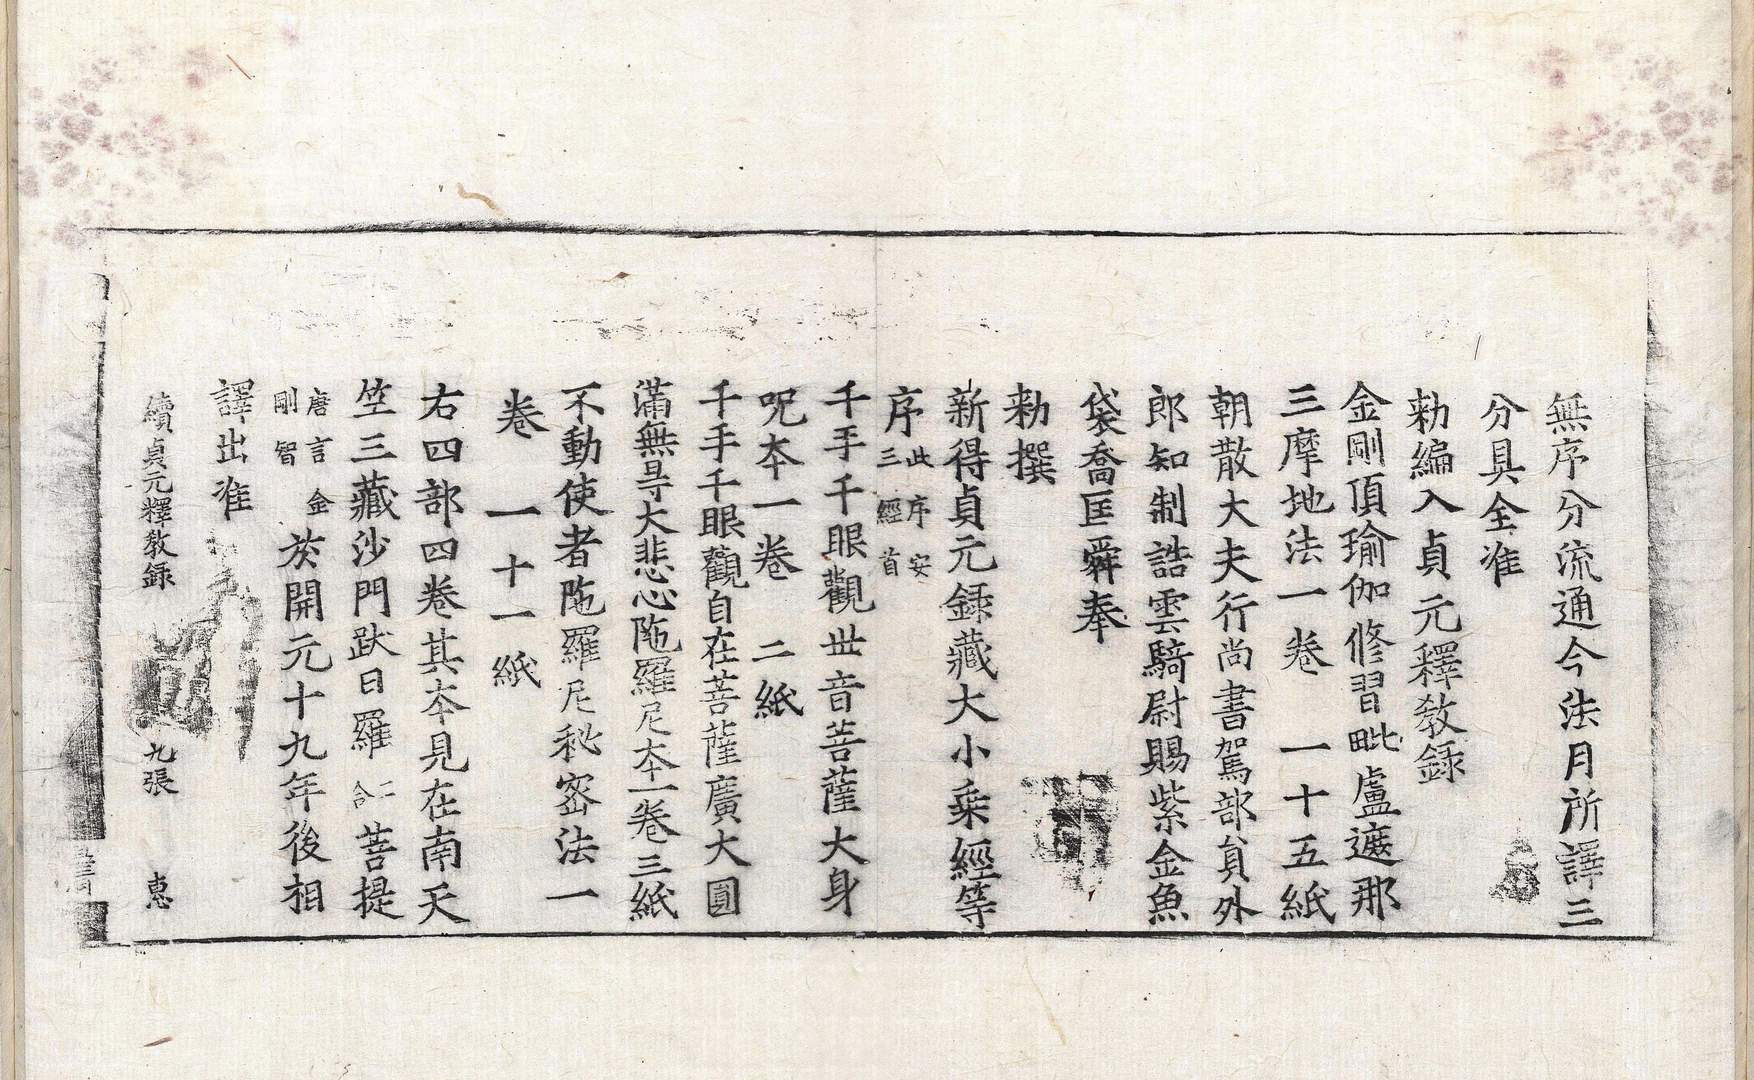 無序分流通今法月所譯三
分具全准
勑編入貞元釋教録
金剛頂瑜伽修習毗盧遮那
三摩地法一卷　一十五紙
朝散大夫行尚書駕部貟外
郎知制誥雲騎尉賜紫金魚
袋喬匡舜奉
勑撰
新得貞元録藏大小乘經等
序此序安三經首
千手千眼觀世音菩薩大身
呪本一卷　二紙
千手千眼觀自在菩薩廣大圓
滿無㝵大悲心陁羅尼本一卷三紙
不動使者陁羅尼秘密法一
卷　一十一紙
右四部四卷其本見在南天
竺三藏沙門跋日羅二合菩提
唐言金剛智於開元十九年後相
譯出准
續貞元釋教録　九張　惠